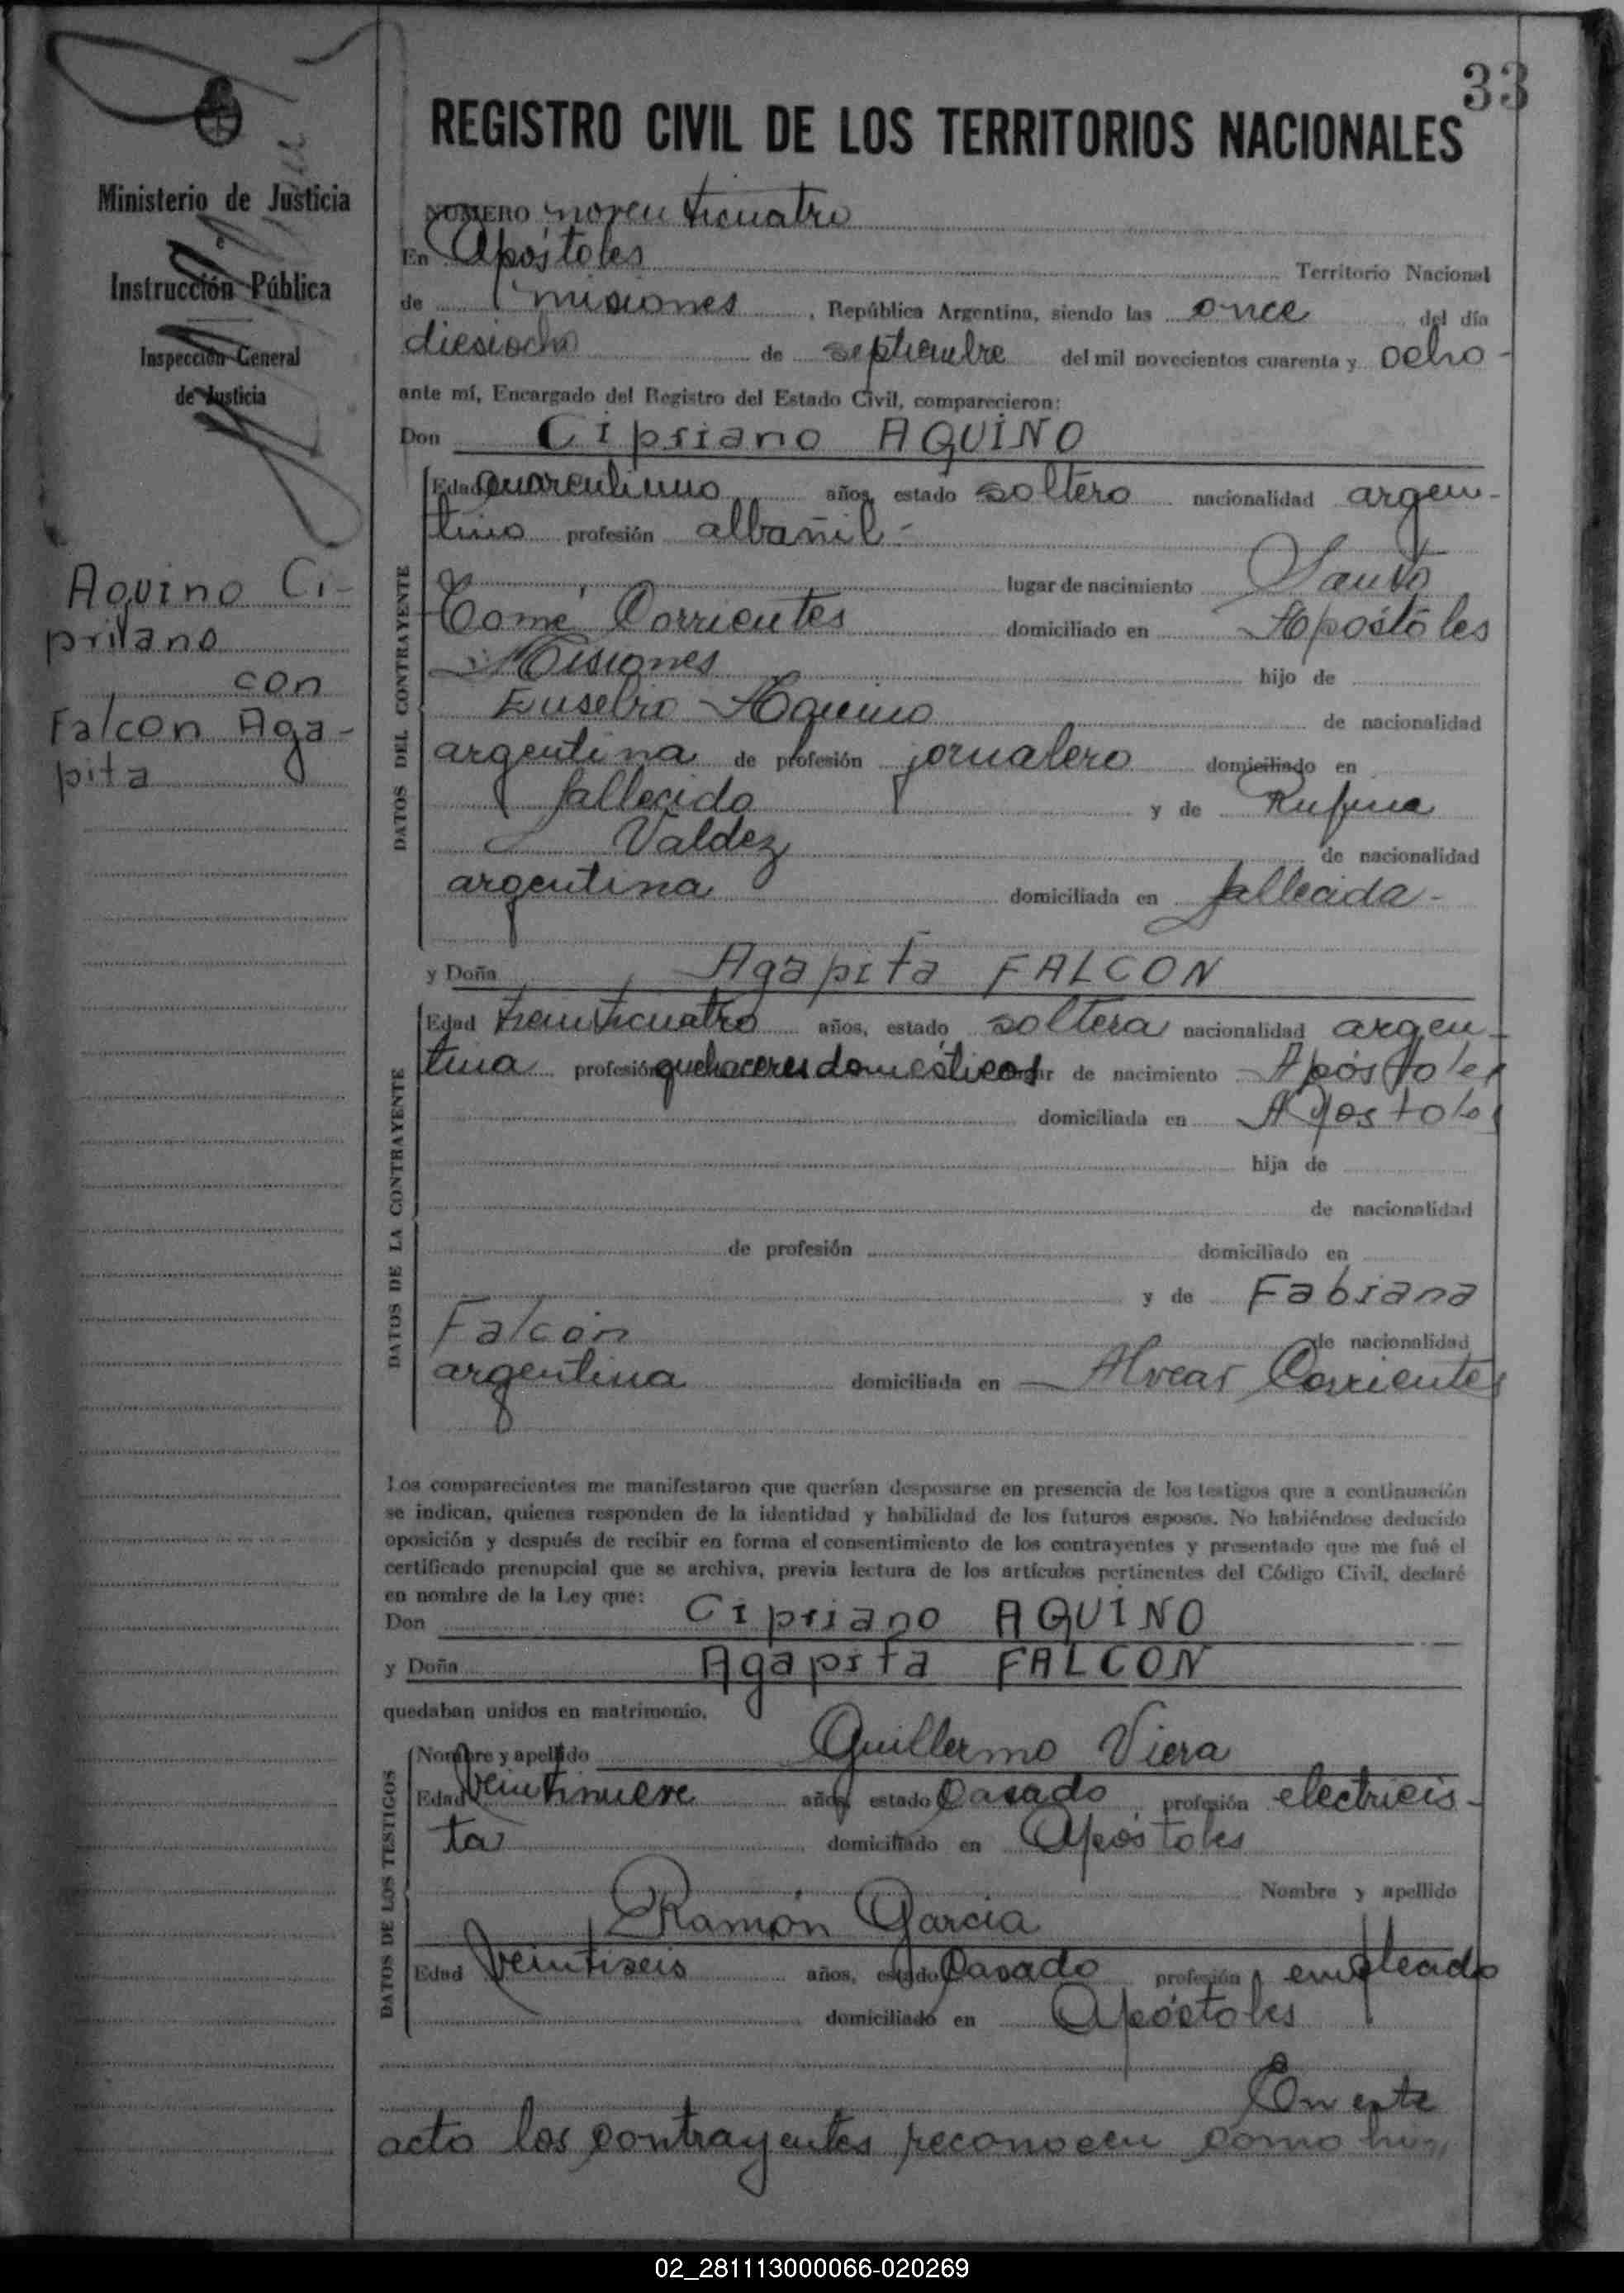 33
REGISTRO CIVIL DE LOS TERRITORIOS NACIONALES
Ministerio de Justicia
e
Instrucción Pública
Inspección General
de Justicia
Aquino Ci-
priano
con
Falcon Aga-
pita
NÚMERO noventicuatro
En Apóstoles Territorio Nacional
de misiones, República Argentina, siendo las once del día
diesiocho de septiembre del mil novecientos cuarenta y ocho -
ante mí, Encargado del Registro del Estado Civil, comparecieron:
Don Cipriano AQUINO
DATOS DEL CONTRAYENTE
Edad cuarentiuno años, estado soltero nacionalidad argen-
tino profesión albañil -
lugar de nacimiento Santo
Tomé Corrientes domiciliado en Apóstoles
Misiones hijo de
Eusebio Aquino de nacionalidad
argentina de profesión jornalero domiciliado en
fallecido y de Rufina
Valdez de nacionalidad
argentina domiciliada en fallecida -
y Doña Agapita FALCON
DATOS DE LA CONTRAYENTE
Edad treinticuatro años, estado soltera nacionalidad argen-
tina profesión quehaceres domésticos lugar de nacimiento Apóstoles
domiciliada en Apostoles
hija de
de nacionalidad
de profesión domiciliado en
y de Fabiana
Falcón de nacionalidad
argentina domiciliada en Alvear Corrientes
Los comparecientes me manifestaron que querían desposarse en presencia de los testigos que a continuación
se indican, quienes responden de la identidad y habilidad de los futuros esposos. No habiéndose deducido
oposición y después de recibir en forma el consentimiento de los contrayentes y presentado que me fué el
certificado prenupcial que se archiva, previa lectura de los artículos pertinentes del Código Civil, declaré
en nombre de la Ley que:
Don Cipriano AQUINO
y Doña Agapita FALCON
quedaban unidos en matrimonio.
DATOS DE LOS TESTIGOS
Nombre y apellido Guillermo Viera
Edad veintinueve años, estado Casado profesión electricis-
ta domiciliado en Apóstoles
Nombre y apellido
Ramón Garcia
Edad veintiseis años, estado Casado profesión empleado
domiciliado en Apóstoles
En este
acto los contrayentes reconocen como
02_281113000066-020269